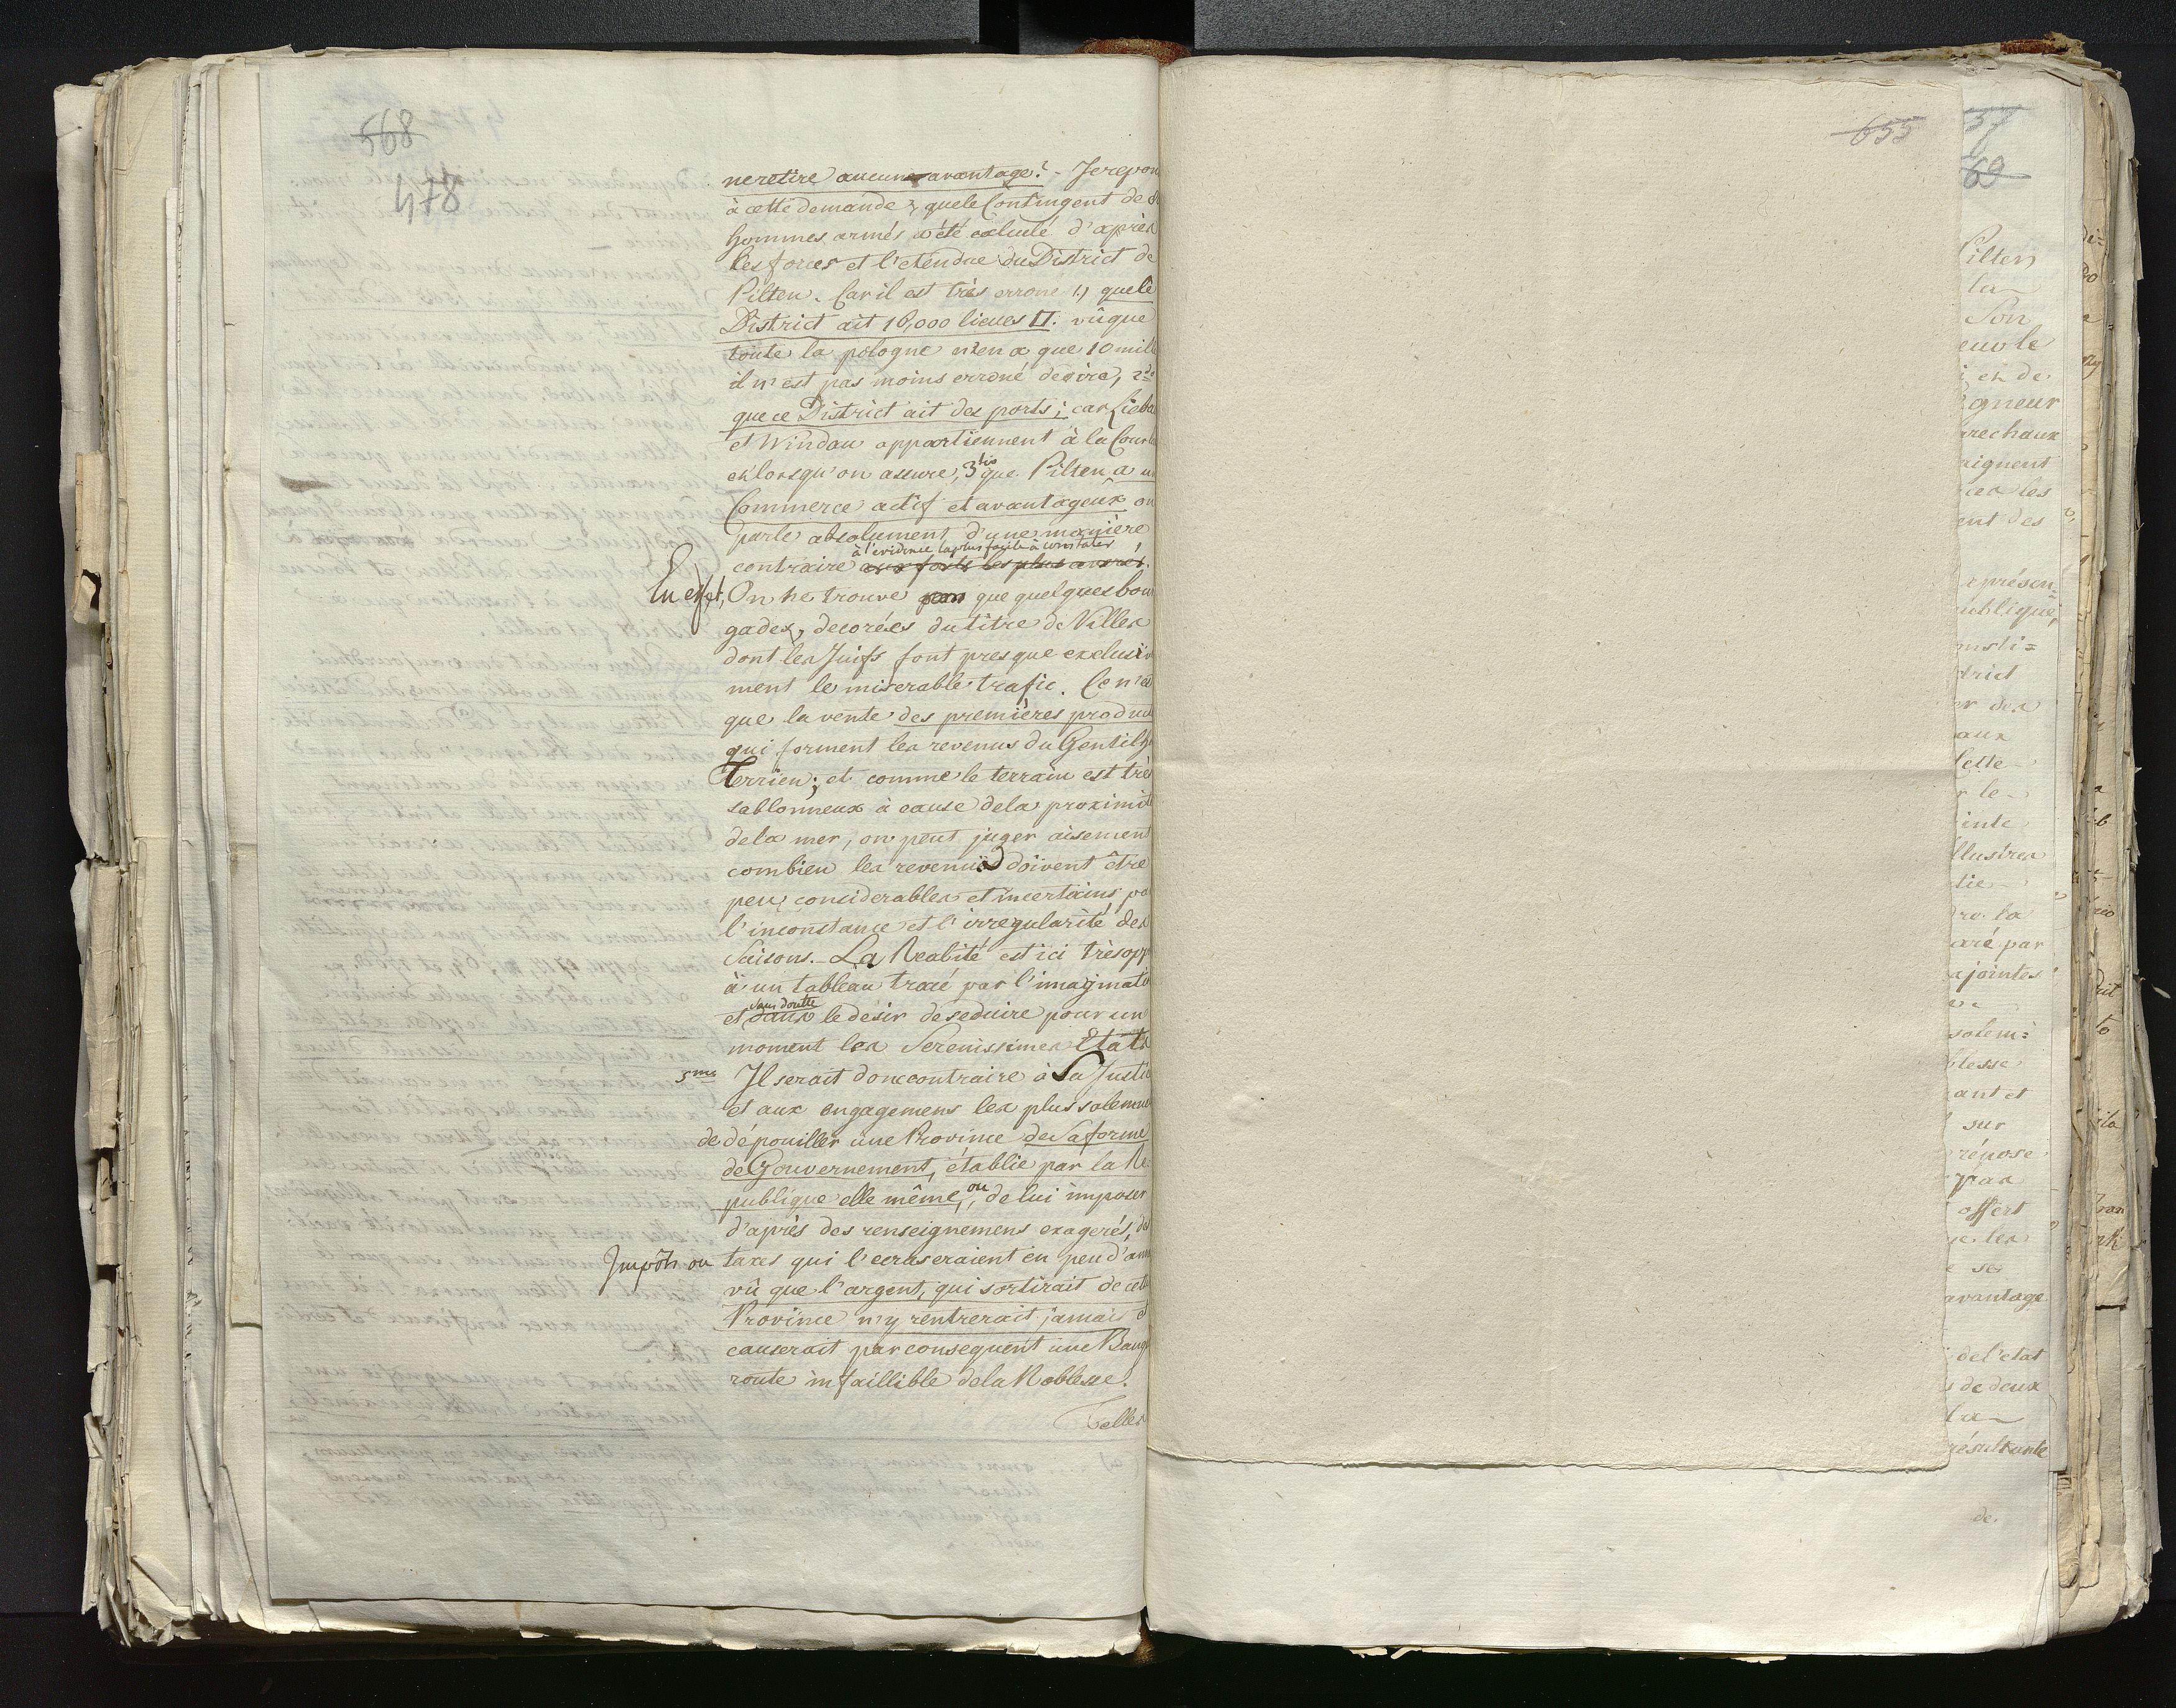 568
478
ne retire aucun avantage? - Je repon
à cette demande, que le Contingent de
hommes armés a été calculé d'après
les forces et l'etendue du District de
Pilten. Car il est très erroné 1.) que le
District ait 16,000 lieues □. vû que
toute la pologne n'en a que 10 mill
il n'est pas moins erroné de dire, 2do
que ce District ait des ports; car Lieba
et Windau appartiennent à la Courl
et lorsqu'on assure, 3tio que Pilten a un
Commerce actif et avantageux on
parle absolument d'une manière
à l'evidence la plus facile à constater
contraire aux faits les plus averés.
En effet, On ne trouve pas que quelques bour
gades, decorées du titre de Villes
dont les Juifs font presque exclusive
ment le miserable trafic. Ce n'est
que la vente des premières product
qui forment les revenus du Gentilho
Terrien; et comme le terrain est très
sablonneux à cause de la proximité
de la mer, on peut juger aisement
combien les revenus doivent être
peu considerables et incertains, pa
l'inconstance et l'irregularité des
Saisons. - La Realité est ici très opp
à un tableau tracé par l'imaginatio
sans doute
et dans le désir de seduire pour un
moment les Serenissimes Etats
5me Il serait donc contraire à Sa Justic
et aux engagemens les plus solemnels
de dépouiller une Province de Sa forme
de Gouvernement, établie par la Re=
publique elle même, ou de lui imposer
d'après des renseignemens exagerés, des
Impôts ou taxes qui l'ecraseraient en peu d'ann
vû que l'argent, qui sortirait de cette
Province n'y rentrerait jamais et
causerait par consequent une Banq
route infaillible de la Noblesse.
Telles
655
57
69
Pilten
la
Son
euvle
i et de
igneur
arechaux
aignent
ces les
ent des
eprésen=
ublique,
nsti=
trict
er des
aux
Cette
r le
inte
llustres
tie
dro la
aré par
ajointes
solem=
blesse
ant et
sur
répose
par
offert
ue les
e se
avantage
de l'etat
s de deux
la
résultante
de